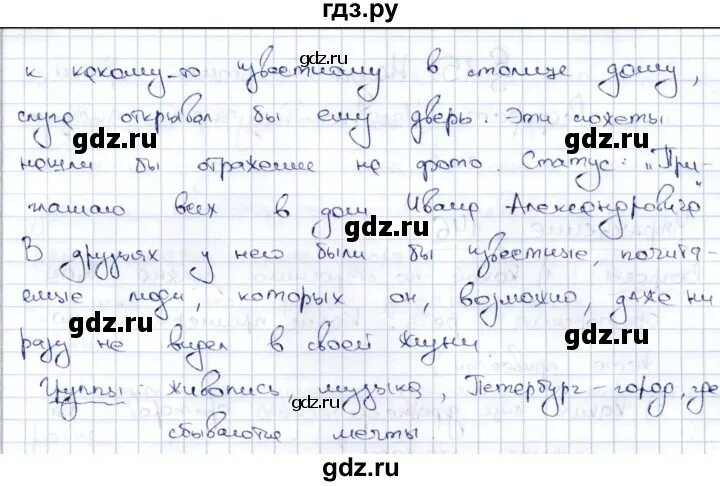 гдз.ру
к какому-то известному в столице дому,
gdz.ru
слуга открывал бы ему дверь. Эти сюжеты
gdz.ru gdz.ru
нашли бы отражение на фото. Статус: "При-
gdz.ru
глашаю всех в дом Ивана Александровича"
gdz.ru
В друзьях у него были бы известные, почита-
емые люди, которых он, возможно, даже ни
gdz.ru gdz.ru
разу не видел в своей жизни.
Группы: живопись, музыка, Петербург - город, где
gdz.ru
сбываются мечты
gdz.ru